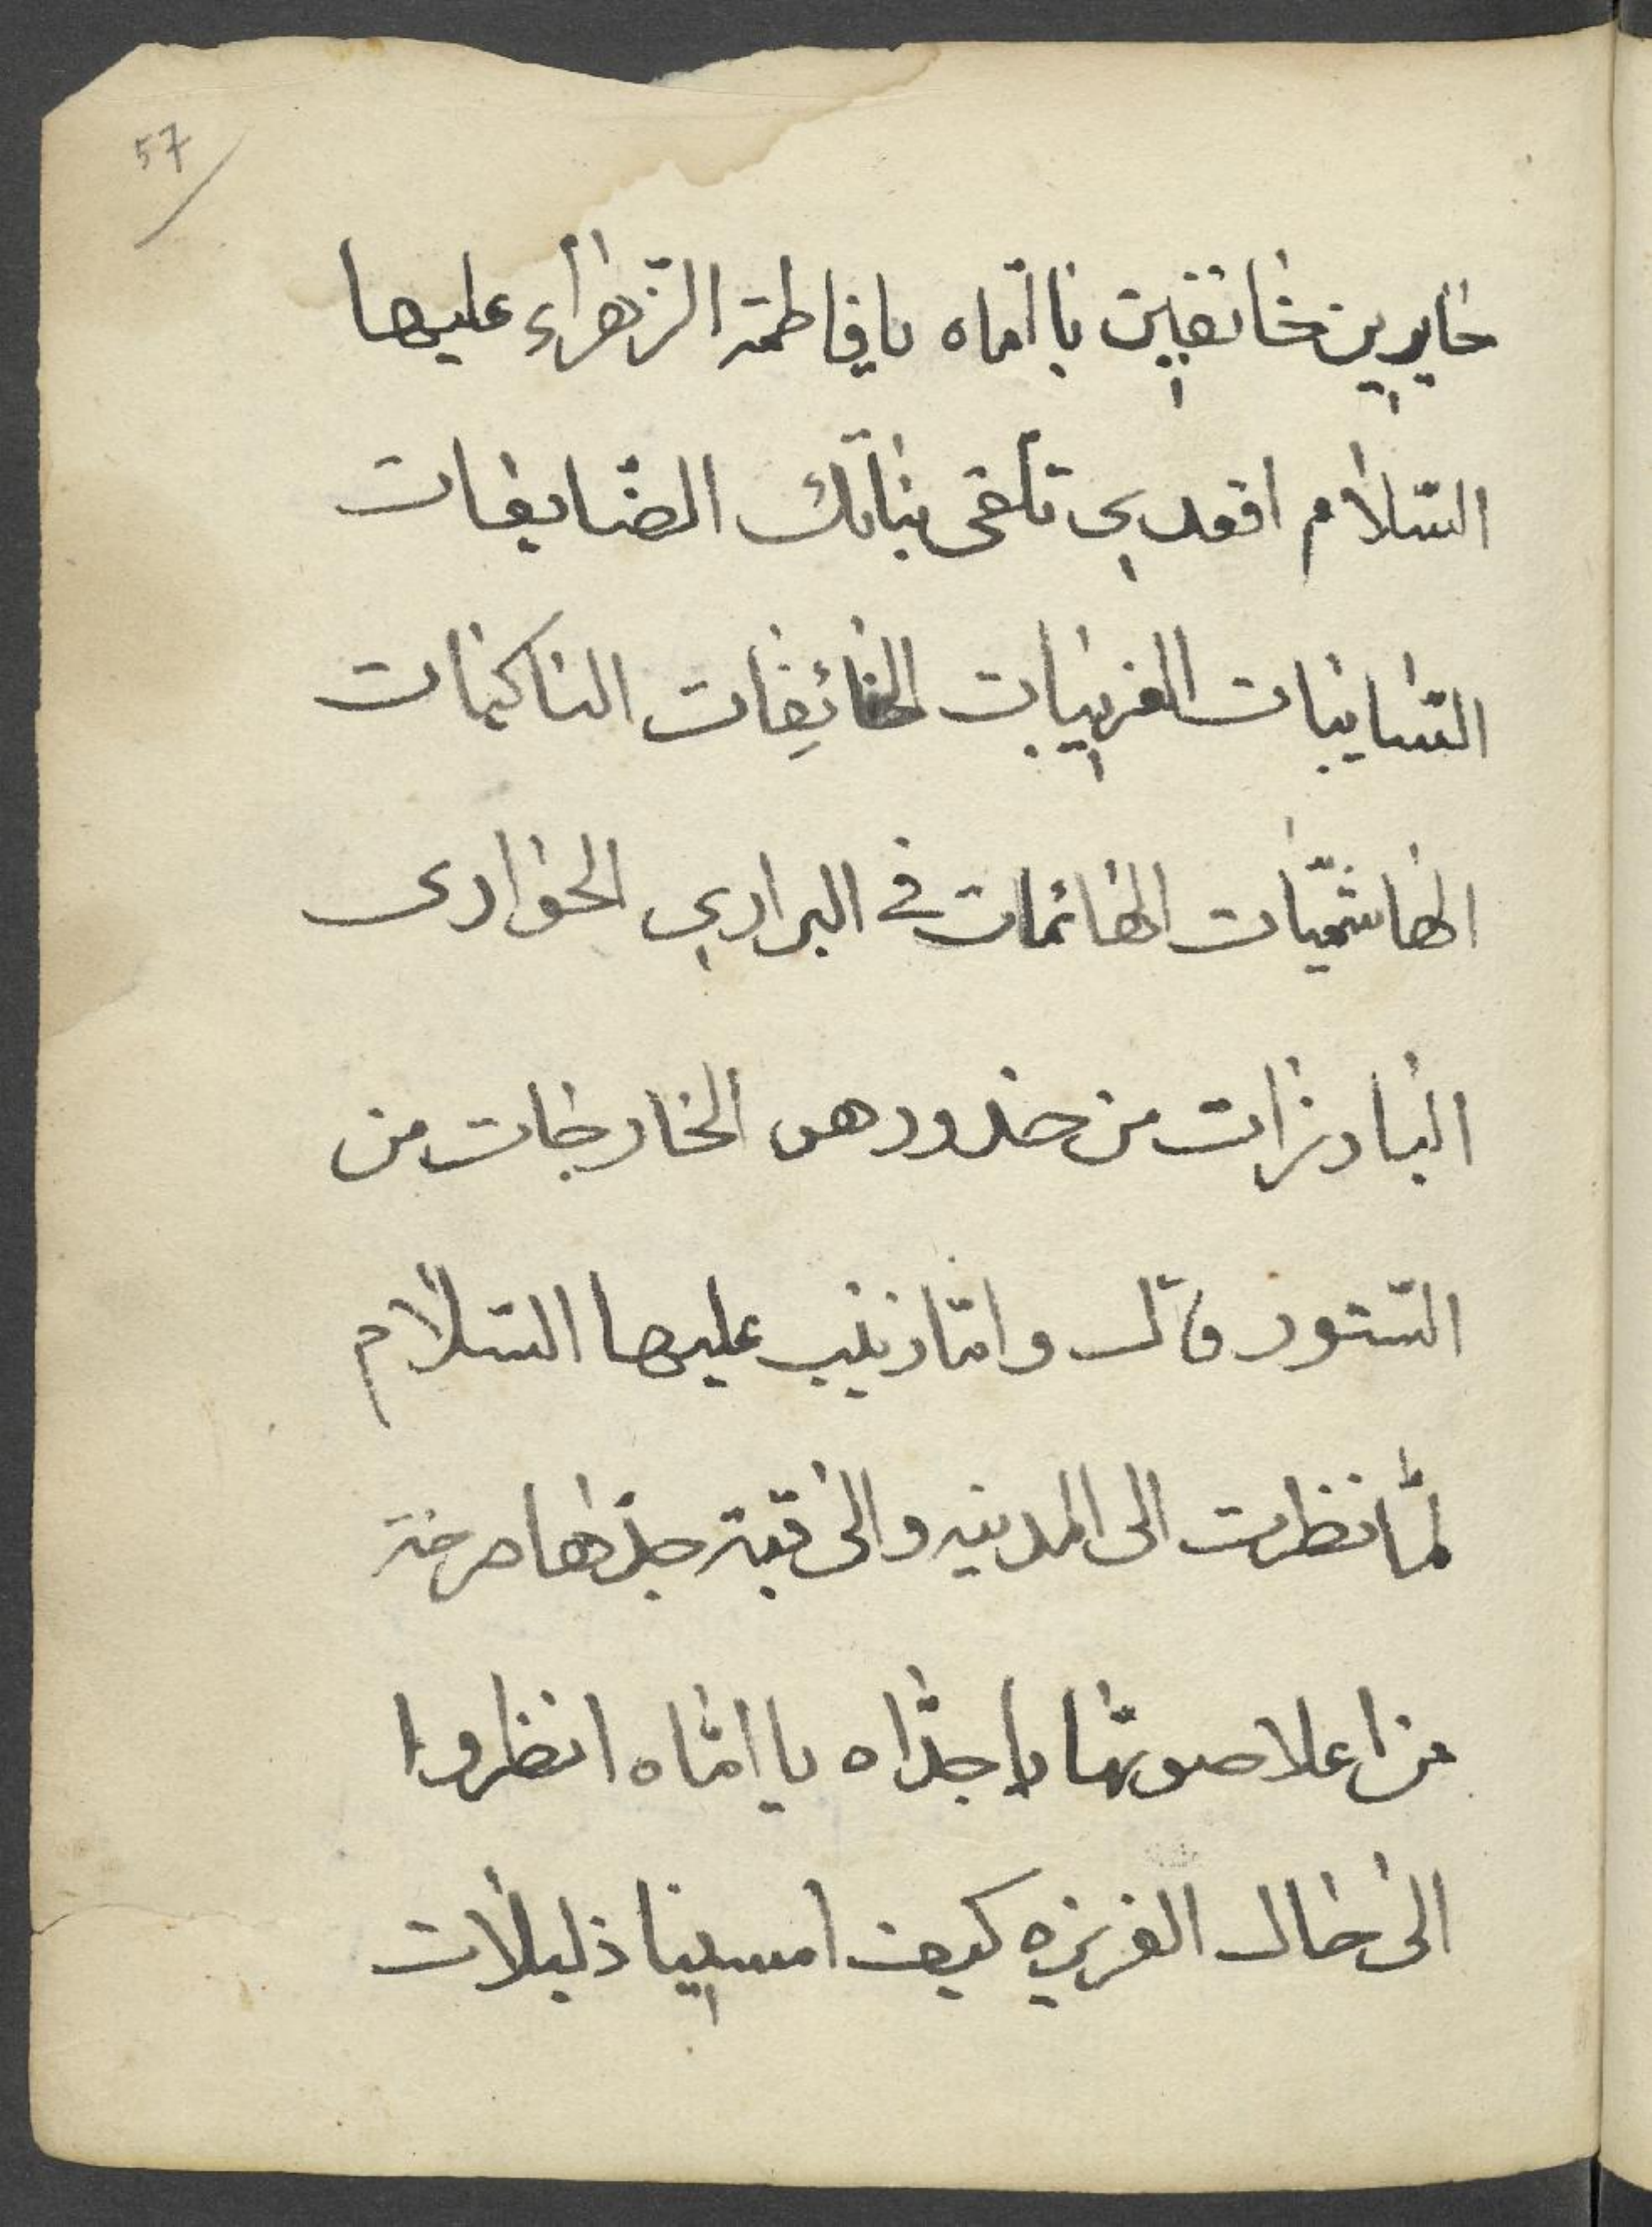 57
حايرين خائفين يا اماه يا فاطمة الزهراء عليها
السّلام اقعدي تلقى بناتك الضّايعات
السّايبات الغريبات الخائفات الباكيات
الهاشميّات الهائمات في البراري الحوارى
البارزات من خدورهن الخارجات من
السّتور قال وامّا زينب عليها السّلام
لمّا نظرت الى المدينه والى قبة جدّها صرخة
من اعلا صوتها يا جدّاه يا امّاه انظروا
الى حال العزيزه كيف امسينا ذليلات